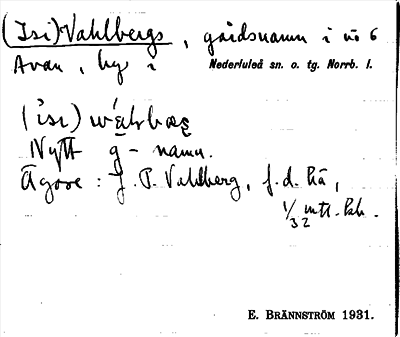 (Isi)Vahlbergs, gårdsnamn i nr 6
Avan, by i Nederluleå sn. o. tg. Norrb. l.
Nytt g-namn.
Ägare: J. P. Vahlberg, f.d.
1/32 mtl.
E. BRÄNNSTRÖM 1931.